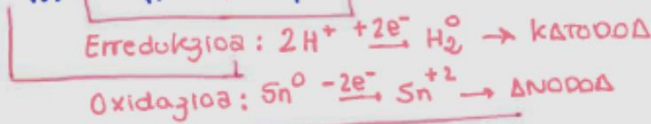 Erredukzioa: 2H⁺ +2e⁻→ H₂⁰ → KATODOA
Oxidazioa: Sn⁰ -2e⁻→ Sn⁺² → ANODOA